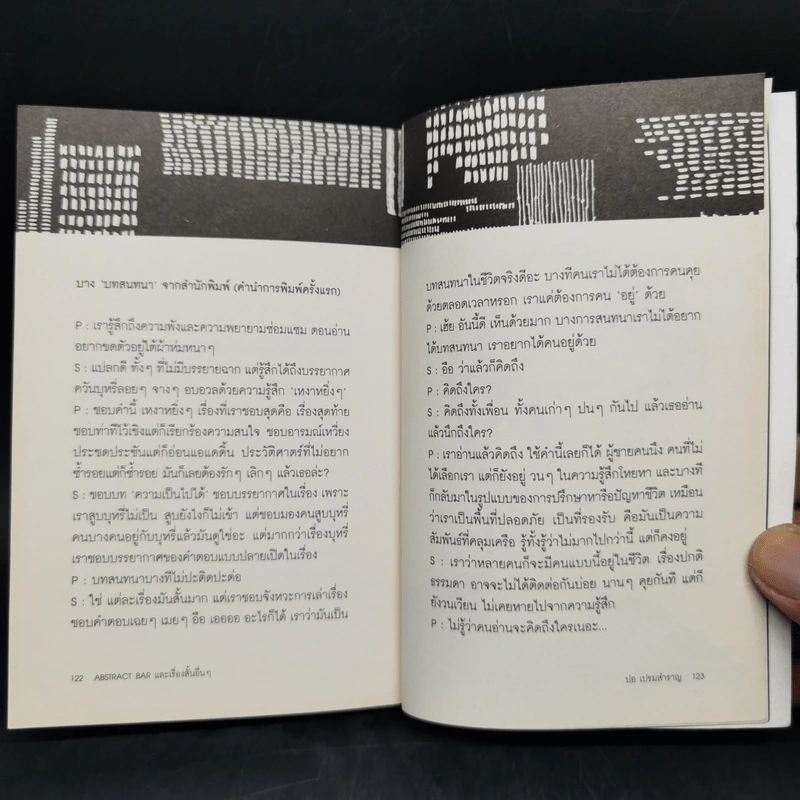 บาง 'บทสนทนา' จากสำนักพิมพ์ (คำนำการพิมพ์ครั้งแรก)
P : เรารู้สึกถึงความพังและความพยายามซ่อมแซม ตอนอ่าน
อยากขดตัวอยู่ใต้ผ้าห่มหนาๆ
S : แปลกดี ทั้งๆ ที่ไม่มีบรรยายฉาก แต่รู้สึกได้ถึงบรรยากาศ
ควันบุหรี่ลอยๆ จางๆ อบอวลด้วยความรู้สึก 'เหงาหยิ่งๆ'
P : ชอบคำนี้ เหงาหยิ่งๆ เรื่องที่เราชอบสุดคือ เรื่องสุดท้าย
ชอบท่าทีไว้เชิงแต่ก็เรียกร้องความสนใจ ชอบอารมณ์เหวี่ยง
ประชดประชันแต่ก็อ่อนแอแดดิ้น ประวัติศาสตร์ที่ไม่อยาก
ซ้ำรอยแต่ก็ซ้ำรอย มันก็เลยต้องรักๆ เลิกๆ แล้วเธอล่ะ?
S : ชอบบท 'ความเป็นไปได้' ชอบบรรยากาศในเรื่อง เพราะ
เราสูบบุหรี่ไม่เป็น สูบยังไงก็ไม่เข้า แต่ชอบมองคนสูบบุหรี่
คนบางคนอยู่กับบุหรี่แล้วมันดูใช่อะ แต่มากกว่าเรื่องบุหรี่
เราชอบบรรยากาศของคำตอบแบบปลายเปิดในเรื่อง
P : บทสนทนาบางทีไม่ปะติดปะต่อ
S : ใช่ แต่ละเรื่องมันสั้นมาก แต่เราชอบจังหวะการเล่าเรื่อง
ชอบคำตอบเฉยๆ เมยๆ อือ เออออ อะไรก็ได้ เราว่ามันเป็น
122 ABSTRACT BAR และเรื่องสั้นอื่นๆ
บทสนทนาในชีวิตจริงดีอะ บางทีคนเราไม่ได้ต้องการคนคุย
ด้วยตลอดเวลาหรอก เราแค่ต้องการคน 'อยู่' ด้วย
P : เฮ้ย อันนี้ดี เห็นด้วยมาก บางการสนทนาเราไม่ได้อยาก
ได้บทสนทนา เราอยากได้คนอยู่ด้วย
S : อือ ว่าแล้วก็คิดถึง
P : คิดถึงใคร?
S : คิดถึงทั้งเพื่อน ทั้งคนเก่าๆ ปนๆ กันไป แล้วเธออ่าน
แล้วนึกถึงใคร?
P : เราอ่านแล้วคิดถึง ใช้คำนี้เลยก็ได้ ผู้ชายคนนึง คนที่ไม่
ได้เลือกเรา แต่ก็ยังอยู่ วนๆ ในความรู้สึกโหยหา และบางที
ก็กลับมาในรูปแบบของการปรึกษาหารือปัญหาชีวิต เหมือน
ว่าเราเป็นพื้นที่ปลอดภัย เป็นที่รองรับ คือมันเป็นความ
สัมพันธ์ที่คลุมเครือ รู้ทั้งรู้ว่าไม่มากไปกว่านี้ แต่ก็คงอยู่
S : เราว่าหลายคนก็จะมีคนแบบนี้อยู่ในชีวิต เรื่องปกติ
ธรรมดา อาจจะไม่ได้ติดต่อกันบ่อย นานๆ คุยกันที แต่ก็
ยังวนเวียน ไม่เคยหายไปจากความรู้สึก
P : ไม่รู้ว่าคนอ่านจะคิดถึงใครเนอะ...
ปอ เปรมสำราญ 123